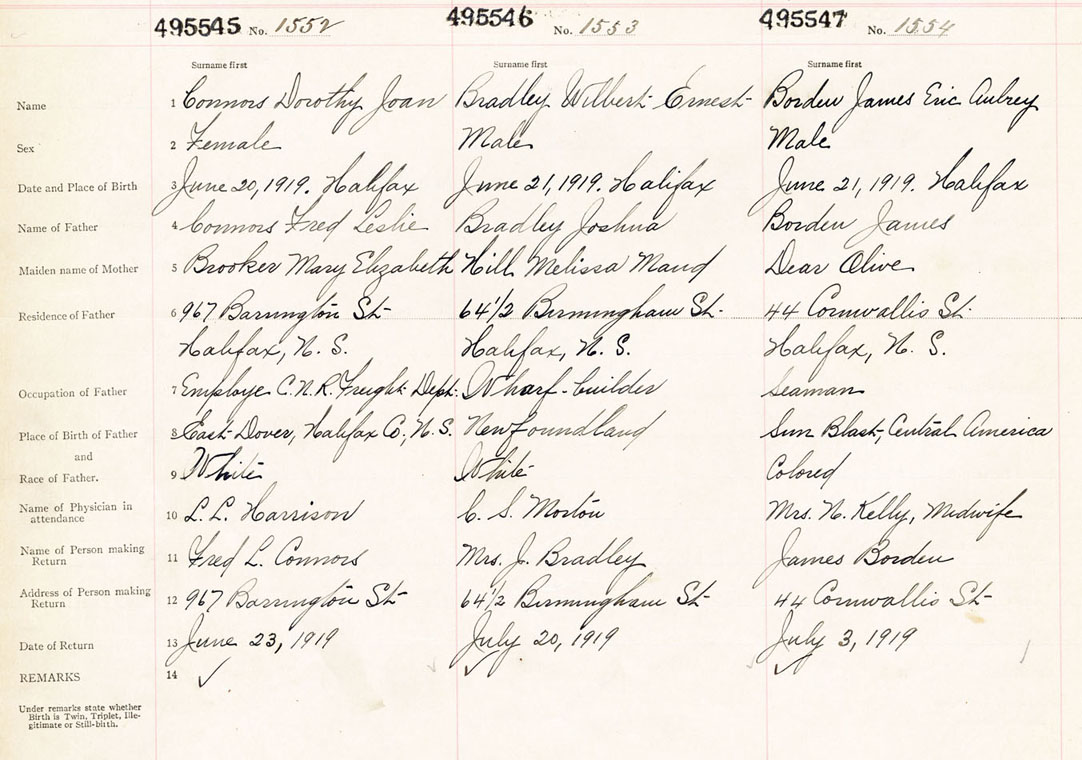 495545 No. 1552 495546 No. 1553 495547 No. 1554
Surname first Surname first Surname first
Name 1 Connors Dorothy Joan Bradley Wilbert Ernest Borden James Eric Aubrey
Sex 2 Female Male Male
Date and Place of Birth 3 June 20, 1919. Halifax June 21, 1919. Halifax June 21, 1919. Halifax
Name of Father 4 Connors Fred Leslie Bradley Joshua Borden James
Maiden name of Mother 5 Brooker Mary Elizabeth Hill Melissa Maud Dear Olive
Residence of Father 6 967 Barrington St 64 1/2 Birmingham St. 44 Cornwallis St.
Halifax, N. S. Halifax, N. S. Halifax, N. S.
Occupation of Father 7 Employe C.N.R. Freight Dept. Wharf-builder Seaman
Place of Birth of Father 8 East Dover, Halifax Co., N. S. Newfoundland Sun Blast, Central America
and
Race of Father. 9 White White Colored
Name of Physician in
attendance 10 L. L. Harrison C. S. Morton Mrs. N. Kelly, Midwife
Name of Person making
Return 11 Fred L. Connors Mrs. J. Bradley James Borden
Address of Person making
Return 12 967 Barrington St 64 1/2 Birmingham St 44 Cornwallis St
Date of Return 13 June 23, 1919 July 20, 1919 July 3, 1919
REMARKS 14 ✓ ✓ ✓
Under remarks state whether
Birth is Twin, Triplet, Ille-
gitimate or Still-birth.